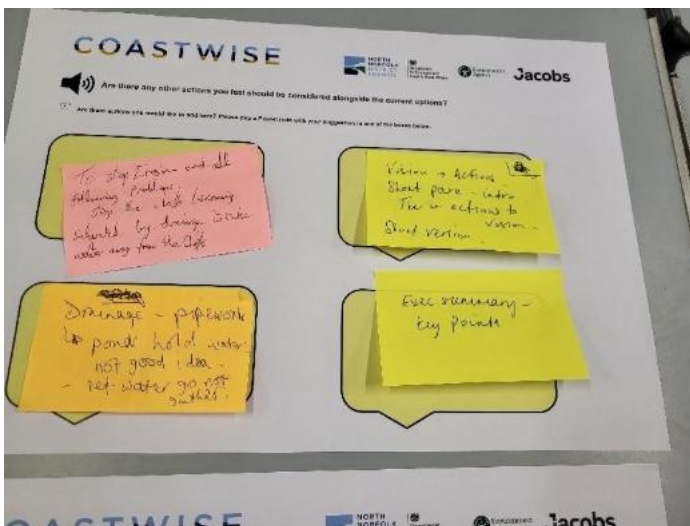 COASTWISE
NORTH
NORFOLK
DISTRICT
COUNCIL
Environment
Agency
Jacobs
Are there any other actions you feel should be considered alongside the current options?
Are there actions you would like to add here? Please pop a Post-it note with your suggestion in one of the boxes below.
To stop Erosion and all
following problems,
stop the cliffs becoming
saturated by drainage
water away from the Cliffs
Vision → Actions
Short para - intro
Tie in actions to
Vision -
Short version.
Drainage - pipework
ponds hold water
not good idea -
- water go not
Exec summary -
key points
COASTWISE
NORTH
NORFOLK
Environment
Jacobs